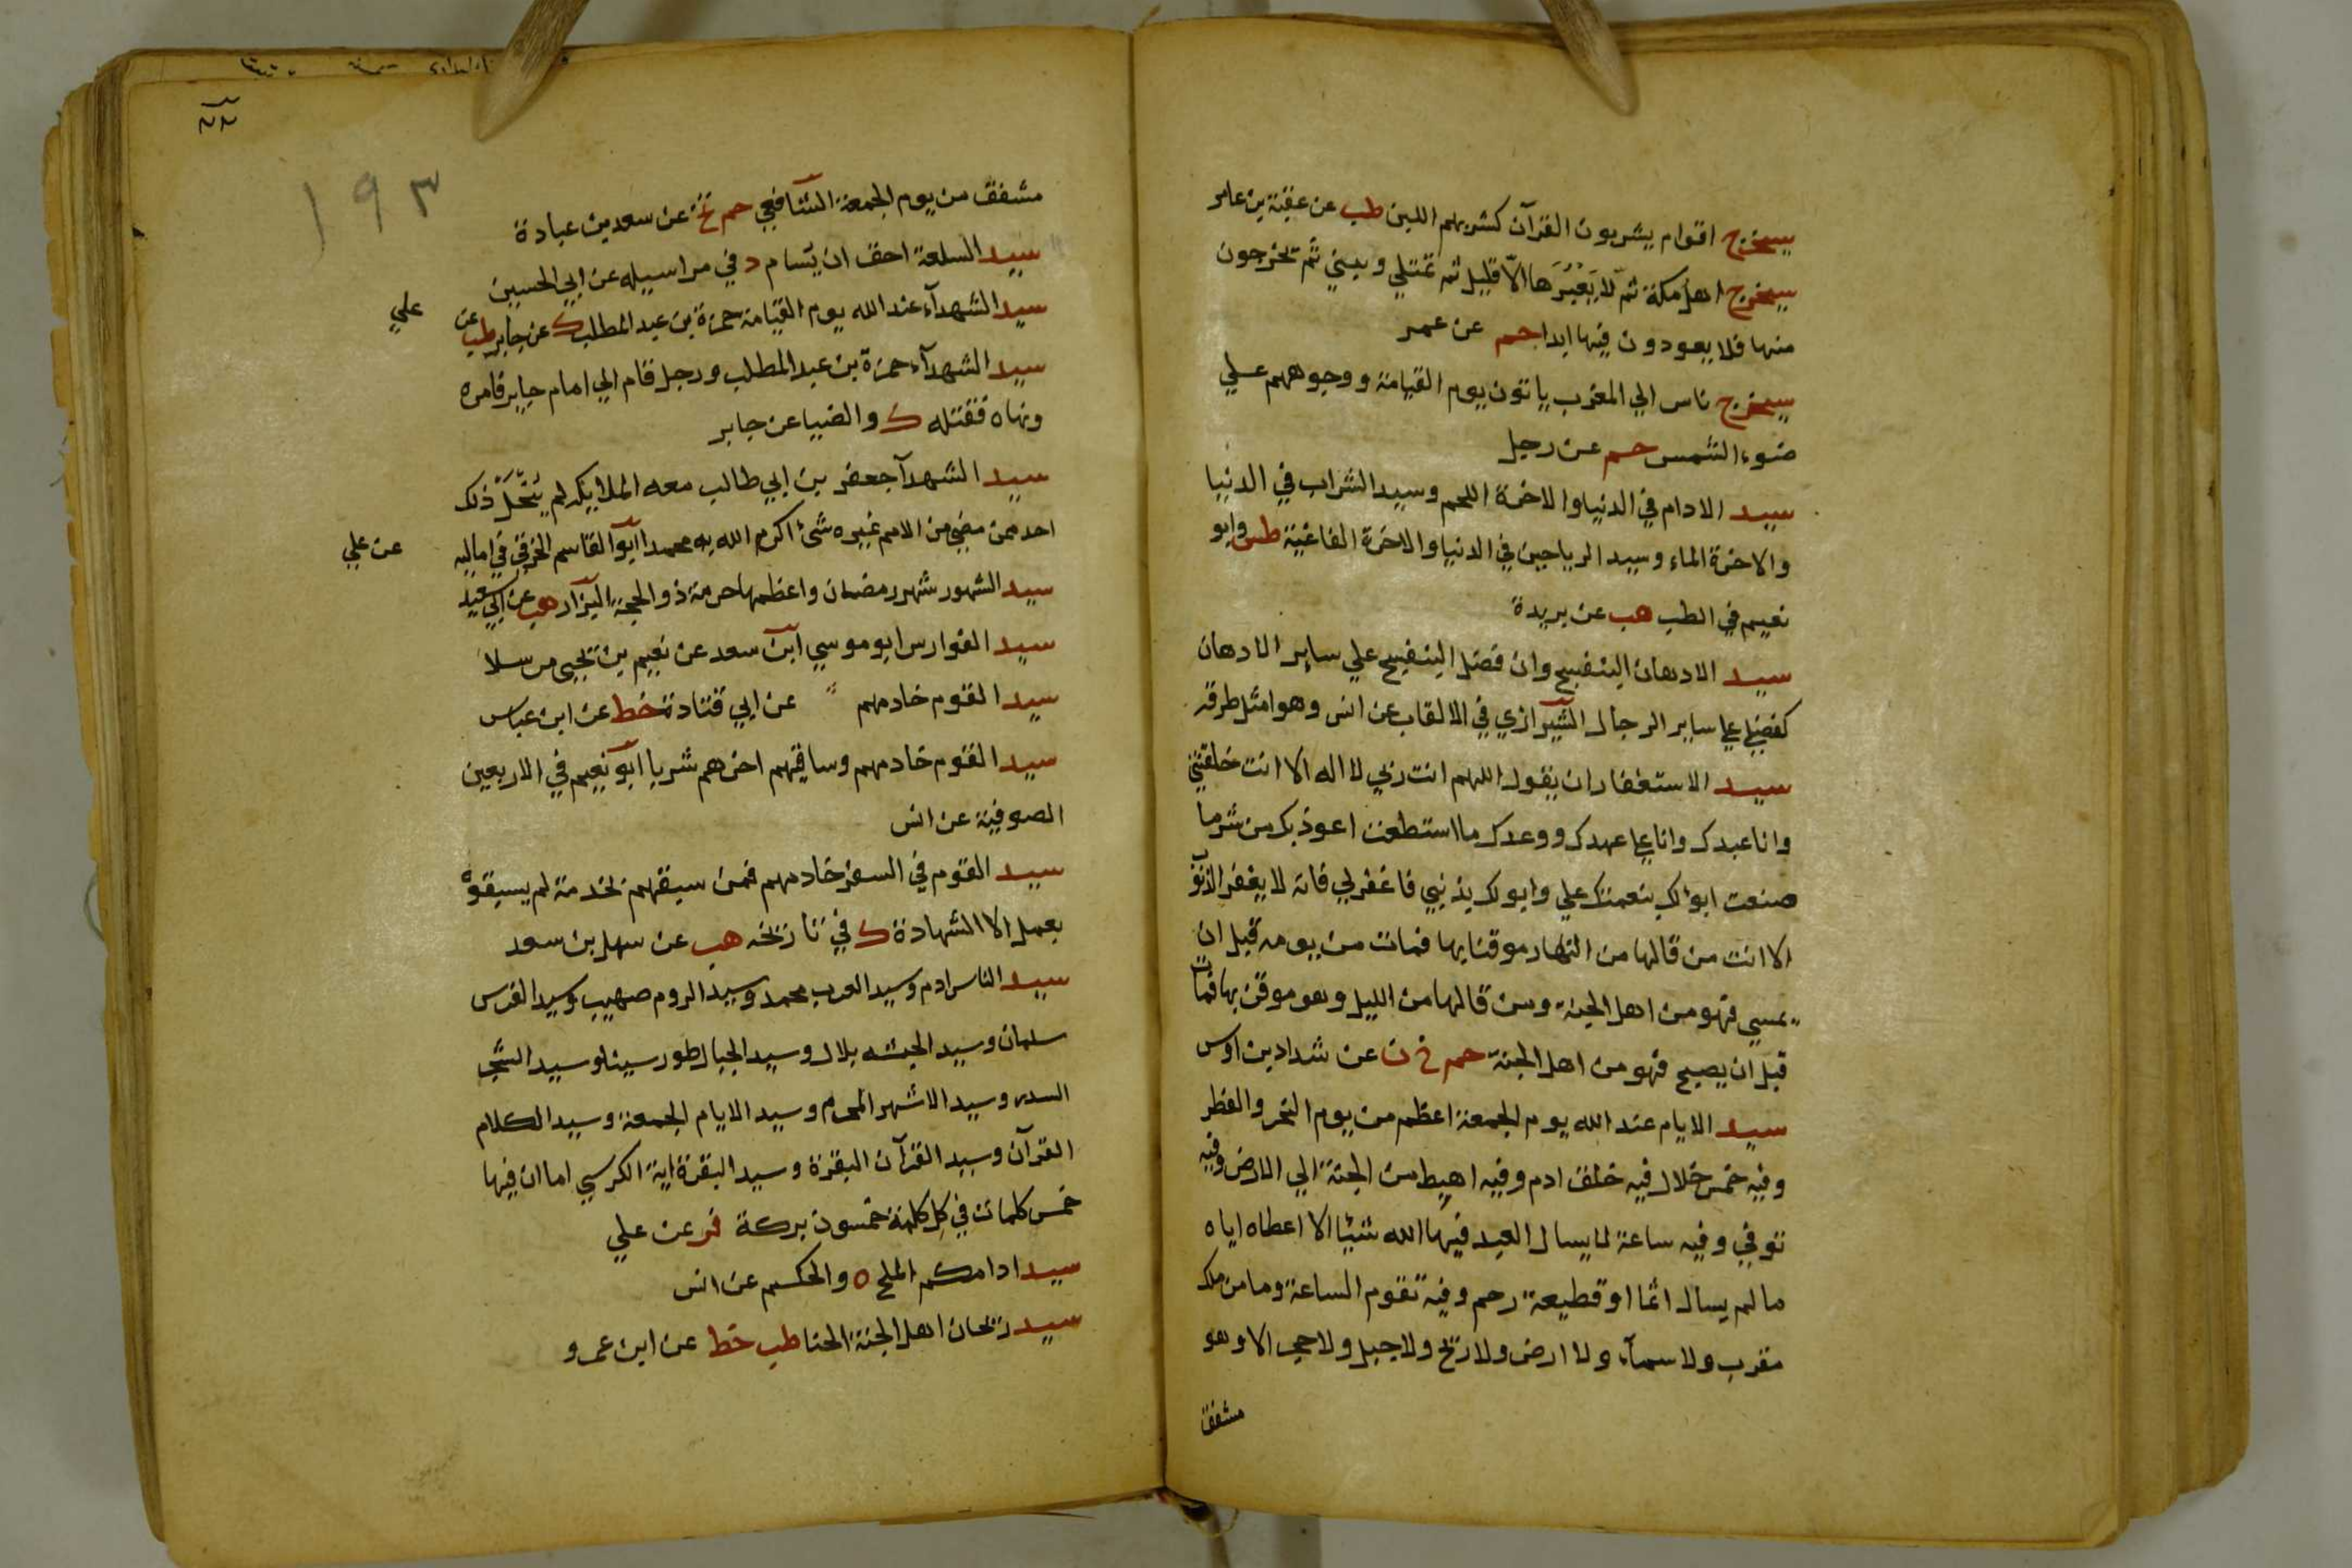 سيخرج اقوام يشربون القرآن كشربهم اللبن طب عن عقبة بن عامر
سيخرج اهل مكة ثم لا يَعْبُرَها الّا قليل ثم تمتلي وتبني ثم يخرجون
منها فلا يعودون فيها ابدا حم عن عمر
سيخرج ناس الي المغرب ياتون يوم القيامة ووجوههم علي
ضوء الشمس حم عن رجل
سيد الادام في الدنيا والاخرة اللحم وسيد الشراب في الدنيا
والاخرة الماء وسيد الرياحين في الدنيا والاخرة الفاغية طس وابو
نعيم في الطب هب عن بريدة
سيد الادهان البنفسج وان فضل البنفسج علي ساير الادهان
كفضلي علي ساير الرجال الشيرازي في الالقاب عن انس وهو امثل طرقه
سيد الاستغفار ان يقول اللهم انت ربي لا اله الا انت خلقتني
وانا عبدك وانا علي عهدك ووعدك ما استطعت اعوذ بك من شر ما
صنعت ابوٴ لك بنعمتك علي وابو لك بذنبي فاغفر لي فانه لا يغفر الذنوب
الا انت من قالها من النهار موقنا بها فمات من يومه قبل ان
يمسي فهو من اهل الجنة ومن قالها من الليل وهو موقن بها فمات
قبل ان يصبح فهو من اهل الجنة حم خ ن عن شداد بن اوس
سيد الايام عند الله يوم الجمعة اعظم من يوم النحر والفطر
وفيه خمس خلال فيه خلق ادم وفيه اهبط من الجنة الي الارض وفيه
توفي وفيه ساعة لا يسال العبد فيها الله شيئا الا اعطاه اياه
ما لم يسال اثما او قطيعة رحم وفيه تقوم الساعة وما من ملك
مقرب ولا سمآء ولا ارض ولا ريح ولا جبل ولا حجر الا وهو
مشفق
١٩٣
مشفق من يوم الجمعة الشافعي حم تخ عن سعد بن عبادة
سيد السلعة احق ان يسام د في مراسيله عن ابي الحسين
سيد الشهدآء عند الله يوم القيامة حمزة بن عبد المطلب ك عن جابر طب عن
علي
سيد الشهدآء حمزة بن عبد المطلب ورجل قام الي امام جاير فامره
ونهاه فقتله ك والضيا عن جابر
سيد الشهدآ جعفر بن ابي طالب معه الملايكة لم يُنْحَلْ ذلك
احد ممن مضي من الامم غيره شئ اكرم الله به محمدا ابو القاسم الحرفي في اماليه
عن علي
سيد الشهور شهر رمضان واعظمها حرمة ذو الحجة البزار هب عن ابي سعيد
سيد الفوارس ابو موسي ابن سعد عن نعيم بن يحيى مرسلا
سيد القوم خادمهم عن ابي قتادة خط عن ابن عباس
سيد القوم خادمهم وساقيهم اخرهم شربا ابو نعيم في الاربعين
الصوفية عن انس
سيد القوم في السفر خادمهم فمن سبقهم بخدمة لم يسبقوه
بعمل الا الشهادة ك في تاريخه هب عن سهل بن سعد
سيد الناس ادم وسيد العرب محمد وسيد الروم صهيب وسيد الفرس
سلمان وسيد الحبشه بلال وسيد الجبال طور سينا وسيد الشجر
السدر وسيد الاشهر المحرم وسيد الايام الجمعة وسيد الكلام
القرآن وسيد القرآن البقرة وسيد البقرة اية الكرسي اما ان فيها
خمس كلمات في كل كلمة خمسون بركة فر عن علي
سيد ادامكم الملح ه والحكيم عن انس
سيد ريحان اهل الجنة الحنا طب خط عن ابن عمرو